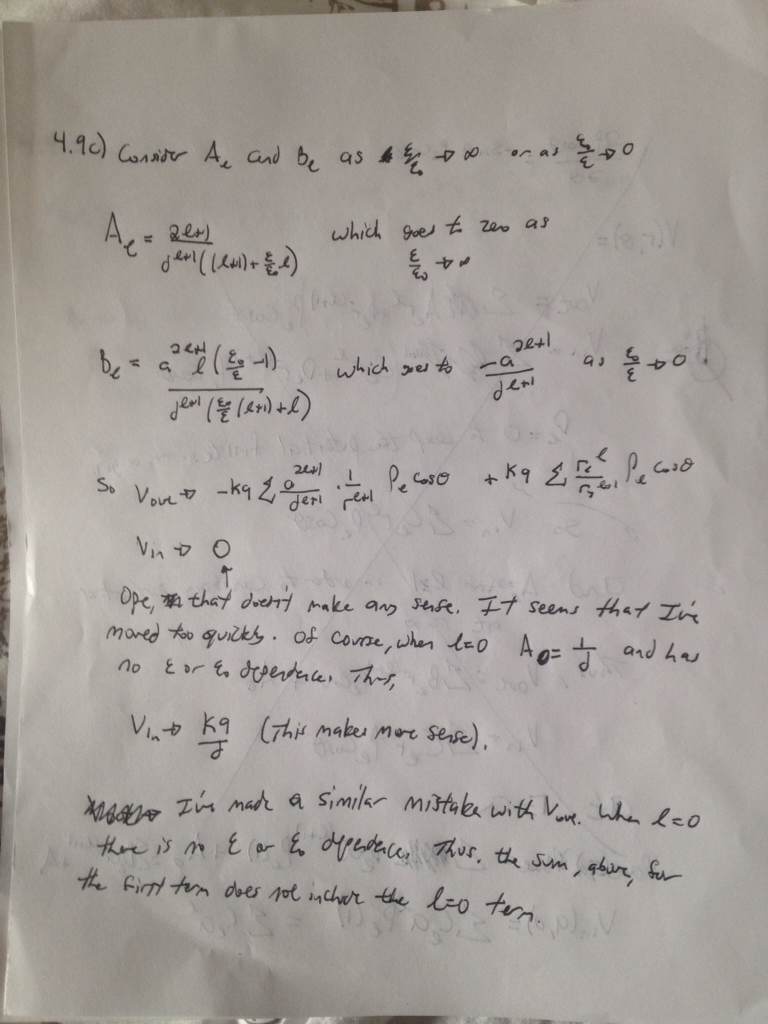 4.9c) Consider A_ℓ and B_ℓ as ε/ε₀ → ∞ or as ε₀/ε → 0
A_ℓ = (2ℓ+1) / (d^(ℓ+1) ((ℓ+1) + (ε/ε₀) ℓ)) which goes to zero as ε/ε₀ → ∞
B_ℓ = a^(2ℓ+1) ℓ (ε₀/ε - 1) / (d^(ℓ+1) (ε₀/ε (ℓ+1) + ℓ)) which goes to -a^(2ℓ+1) / d^(ℓ+1) as ε₀/ε → 0.
So V_out → -Kq Σ a^(2ℓ+1)/d^(ℓ+1) · 1/r^(ℓ+1) P_ℓ cosθ + Kq Σ r_<^ℓ / r_>^(ℓ+1) P_ℓ cosθ
V_in → 0
↑
Ope, that doesn't make any sense. It seems that I've
moved too quickly. Of course, when ℓ=0 A_0 = 1/d and has
no ε or ε₀ dependence. Thus,
V_in → Kq/d (This makes more sense).
I've made a similar mistake with V_out. When ℓ=0
there is no ε or ε₀ dependence. Thus, the sum, above, for
the first term does not include the ℓ=0 term.